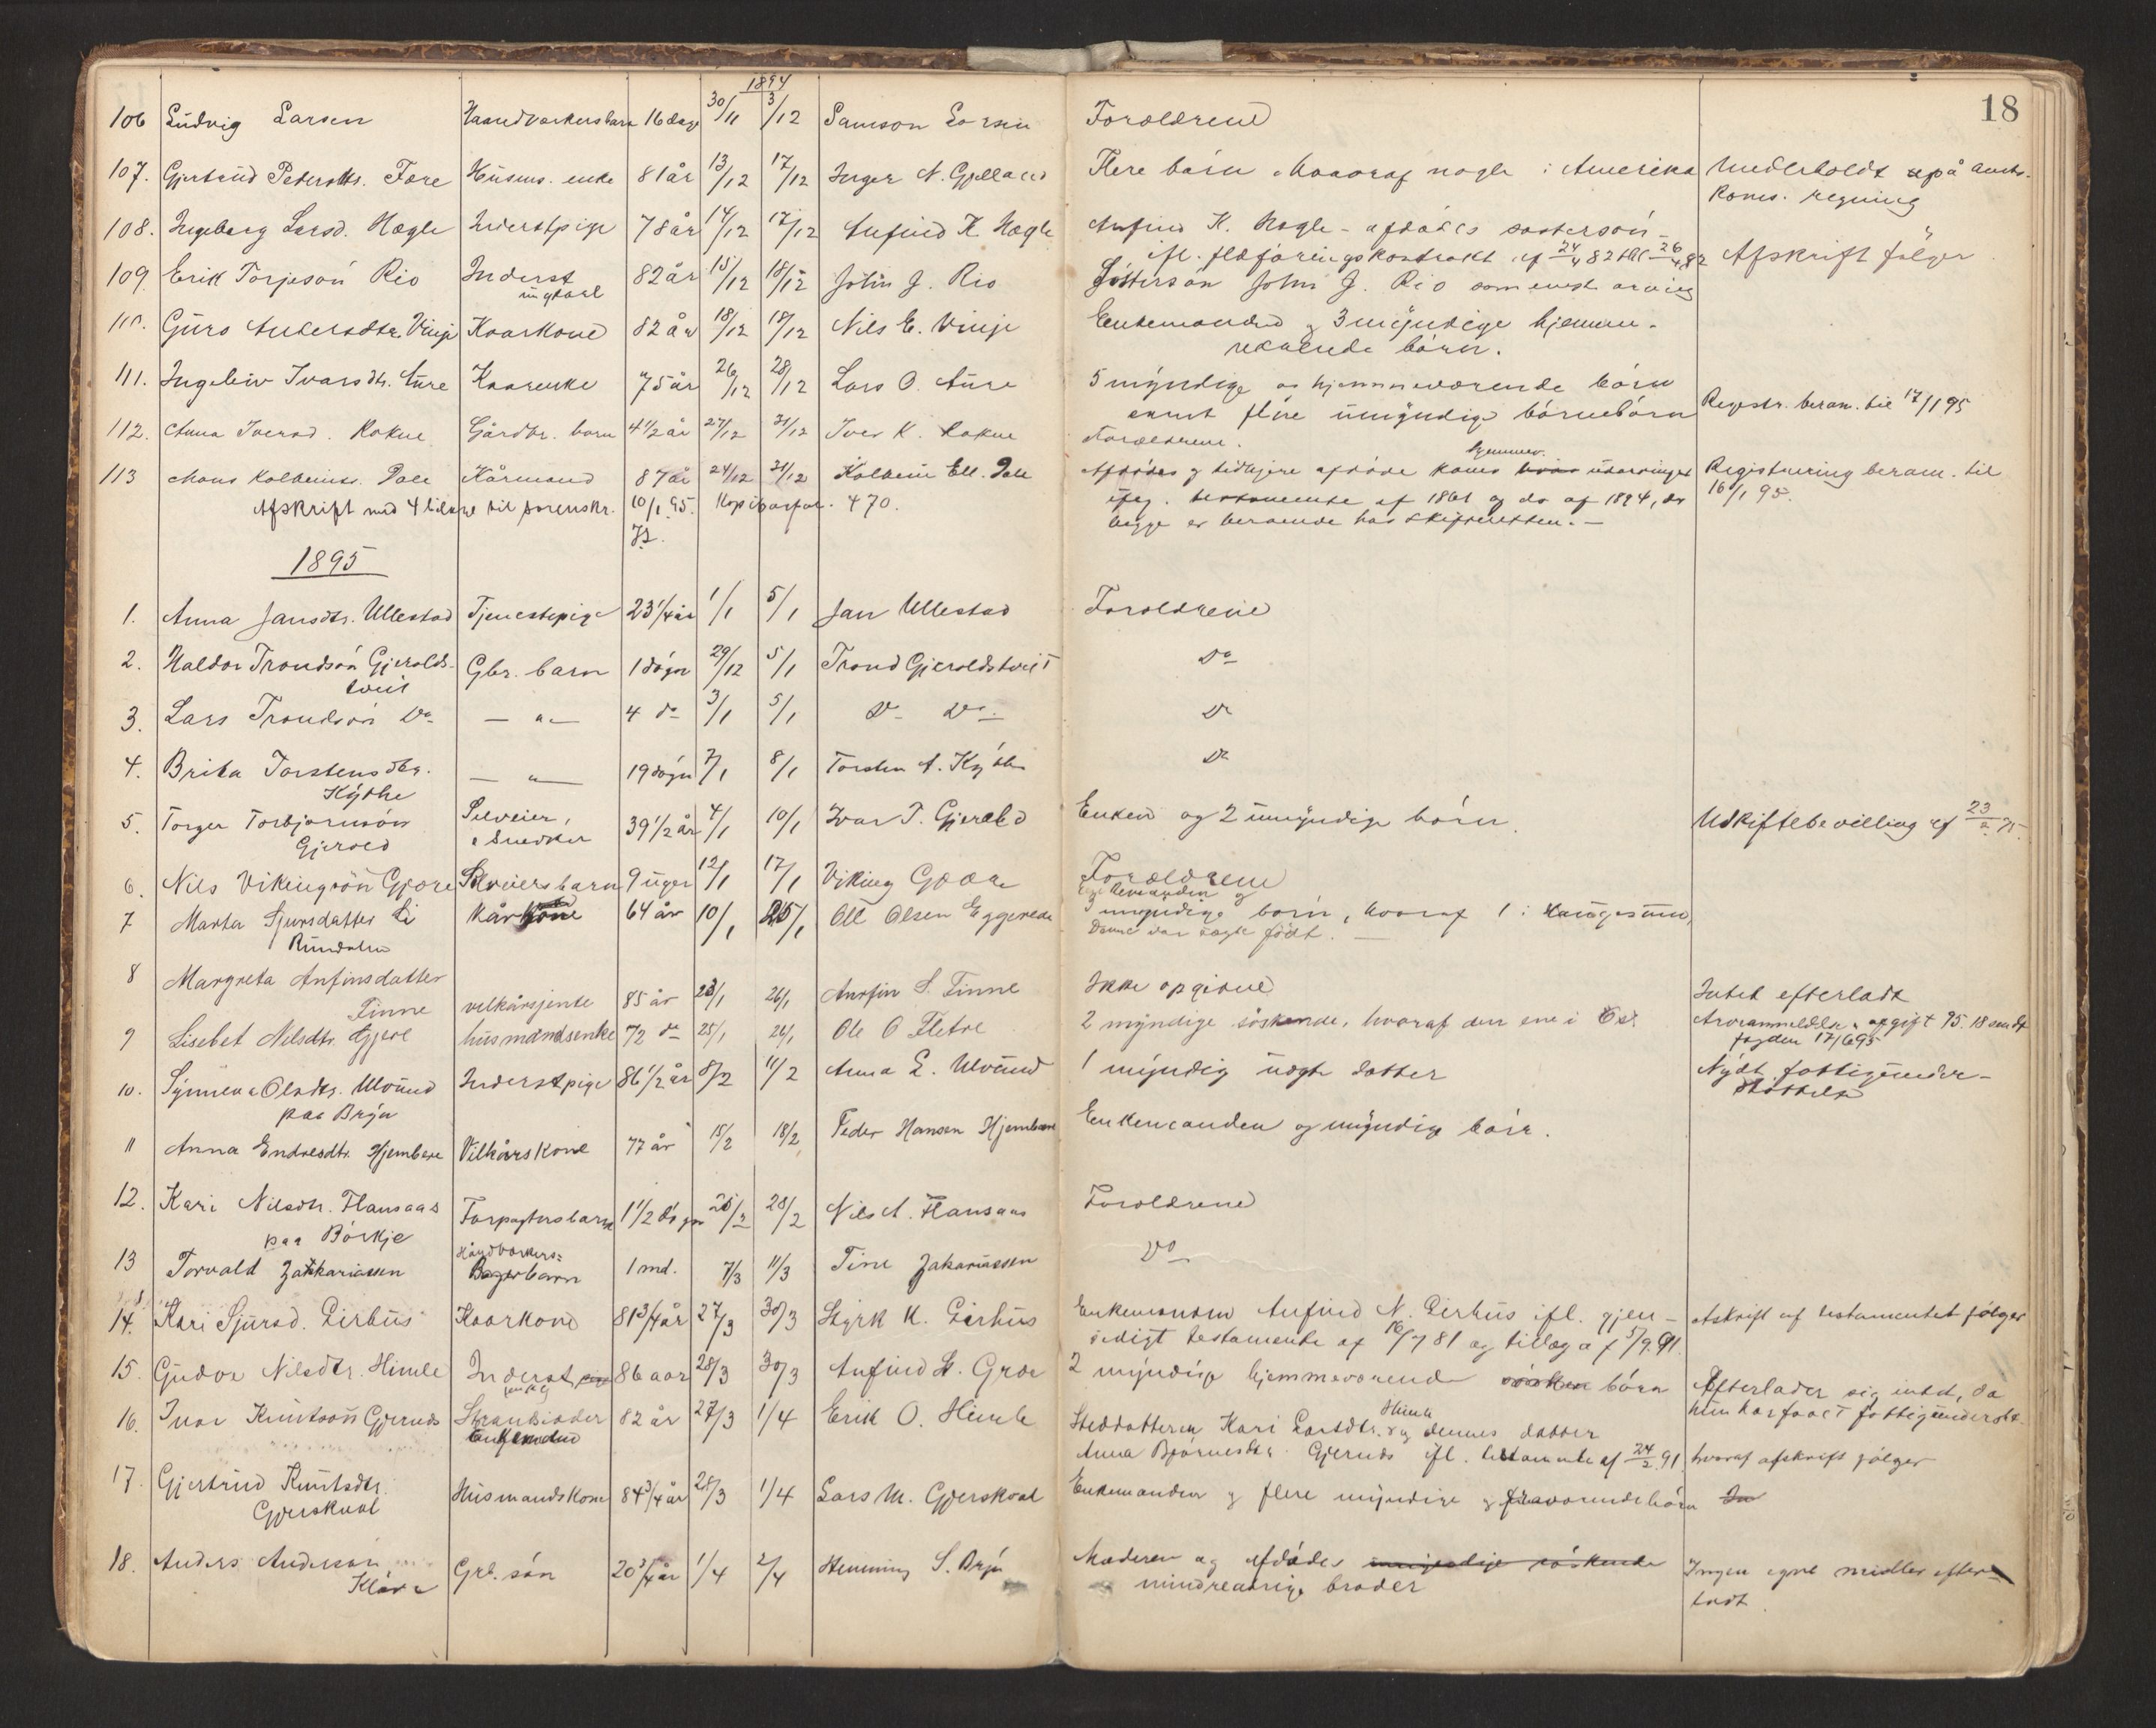 1894
18
106 Ludvig Larsen Haandværkersbarn 16 dage 30/11 3/12 Samson Larsen Forældrene
107. Gjertrud Pedersdtr. Fære Husms. enke 81 år 13/12 17/12 Inger N. Gjelland Flere børn, hvoraf nogle i Amerika Underholdt på amts-
koms. regning
108. Ingeborg Larsd. Nogle Inderstpige 78 år 14/12 17/12 Anfind K. Nogle Anfind K. Nogle - afdødes søstersøn -
ifl. fldføringskontrakt af 24/4 82 26/4 82 Afskrift følger
109. Erik Torjesøn Rio Inderst 82 år 15/12 18/12 John J. Rio Søstersøn John J. Rio som eneste arving
ungkarl
110. Guro Andersdtr. Vinje Kaarkone 82 år 18/12 19/12 Nils E. Vinje Enkemanden og 3 myndige hjemme-
værende børn.
111. Ingeleiv Ivarsdtr. Aure Kaarenke 75 år 26/12 28/12 Lars O. Aure 5 myndige og hjemmeværende børn
samt flere umyndige børnebørn Registr. beram. til 17/1 95
112. Anna Iversd. Rokne Gårdbr. barn 4 1/2 år 27/12 31/12 Iver K. Rokne Forældrene.
113 Mons Kolbeins. Dale Kårmand 87 år 24/12 31/12 Kolbein Ell. Dale Afdødes og tidligere afdøde kones udarvinger Registrering beram. til
16/1 95.
Afskrift med 4 bilage til sorenskr. 10/1 95. Kopibog fol. 470. testamente af 1861 og do af 1894, der
begge er beroende hos skifteretten. —
1895
1. Anna Jansdtr. Ullestad Tjenestepige 23 1/4 år 1/1 5/1 Jan Ullestad Forældrene
2. Haldor Trondsøn Gjerolds-
tveit Gbr. barn 1 døgn 29/12 5/1 Trond Gjeroldstveit Do
3. Lars Trondsøn Do — " — 4 do 3/1 5/1 Do Do Do
4. Brita Torstensdtr.
Kythe — " — 19 døgn 7/1 8/1 Torsten A. Kythe Do
5. Torger Torbjørnsøn
Gjerald Selveier,
Snedker 39 1/2 år 4/1 10/1 Ivar T. Gjerald Enken og 2 umyndige børn. Uskiftebevilling af 23/2 95.
6. Nils Vikingsøn Gjøre Selveiersbarn 9 uger 12/1 17/1 Viking Gjøre Forældrene
7 Marta Sjursdatter Li
Rundalen Kårkone 64 år 10/1 25/1 Ole Olsen Eggereide Enkemanden og
3 myndige børn, hvoraf 1 i Haugesund,
Denne var uægte født. —
8 Margreta Anfinsdatter
Finne vilkårsjente 85 år 23/1 26/1 Anfin S. Finne Ikke opgivne Intet efterladt
9 Lisebet Nilsdtr. Gjere husmandsenke 72 do 25/1 26/1 Ole O Fletre 2 myndige søskende, hvoraf den ene i Arveanmeldelse, afgift 95. 18 sendt
fogden 17/6 95
10. Synneva Olsdtr. Ulvund
paa Bryn Inderstpige 86 1/2 år 8/2 11/2 Anna E. Ulvund 1 myndig uægte datter Nydt fattigunder-
støttelse
11 Anna Endresdtr. Hjembere Vilkårskone 77 år 15/2 18/2 Peder Hansen Hjembere Enkemanden og myndige børn.
12. Kari Nilsdtr. Flansaas
paa Børkje Forpagtersbarn 1 1/2 døgn 26/2 28/2 Nils A. Flansaas Forældrene
13 Torvald Zakkariassen Håndværkers-
Bagerbarn 1 md. 7/3 11/3 Tine Zakariassen Do
14. Kari Sjursd. Lirhus Kaarkone 81 3/4 år 27/3 30/3 Styrk K. Lirhus Enkemanden Anfind N. Lirhus ifl. gjen-
sidigt testamente af 16/7 81 og tillæg af 5/9. 91. Afskrift af testamentet følger
15. Gudve Nilsdtr. Himle Inderst 86 aar 28/3 30/3 Anfind St. Groe 2 myndige hjemmeværende børn Efterlader sig intet, da
hun har faaet fattigunderst.
16. Ivar Knutsøn Gjernds
Enkemand 82 år 27/3 1/4 Erik O. Himle Steddatteren Kari Larsdtr. Himle og dennes datter
Anna Bjørnesdtr. Gjernds ifl. testamente af 24/2 91. hvoraf afskrift følger
17. Gjertrud Knutsdtr.
Gjerskval Husmandskone 84 3/4 år 28/3 1/4 Lars M. Gjerskval Enkemanden og flere myndige og fraværende børn
18. Anders Anderssøn
Kløve Grb. søn 20 3/4 år 1/4 2/4 Hemming S. Bryn Moderen og afdødes umyndige søskende
mindreaarige broder Ingen egne midler efter-
ladt.